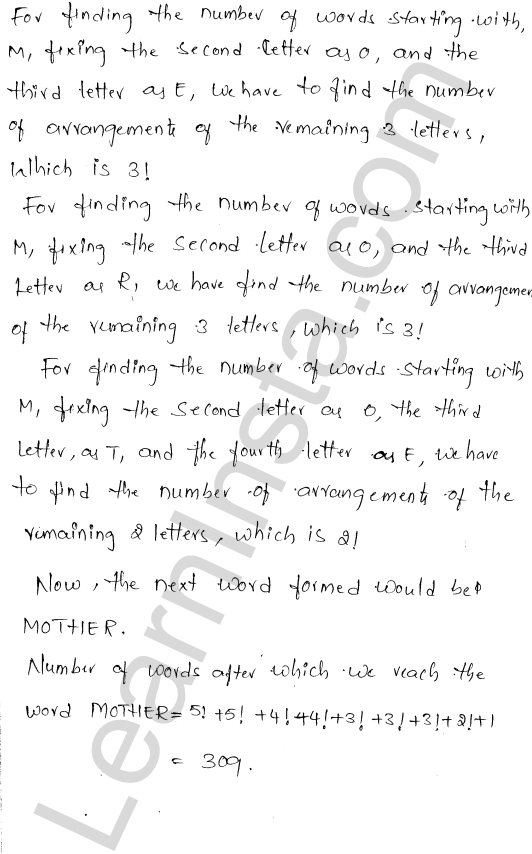 For finding the number of words starting with,
M, fixing the second letter as O, and the
third letter as E, we have to find the number
of arrangements of the remaining 3 letters,
Which is 3!
For finding the number of words starting with
M, fixing the second letter as O, and the third
Letter as R, we have find the number of arrangemen
of the remaining 3 letters, which is 3!
For finding the number of words starting with
M, fixing the second letter as O, the third
Letter, as T, and the fourth letter as E, we have
to find the number of arrangements of the
remaining 2 letters, which is 2!
Now, the next word formed would be
MOTHER.
Number of words after which we reach the
word MOTHER = 5! + 5! + 4! + 4! + 3! + 3! + 3! + 2! + 1
= 309.
LearnInsta.com